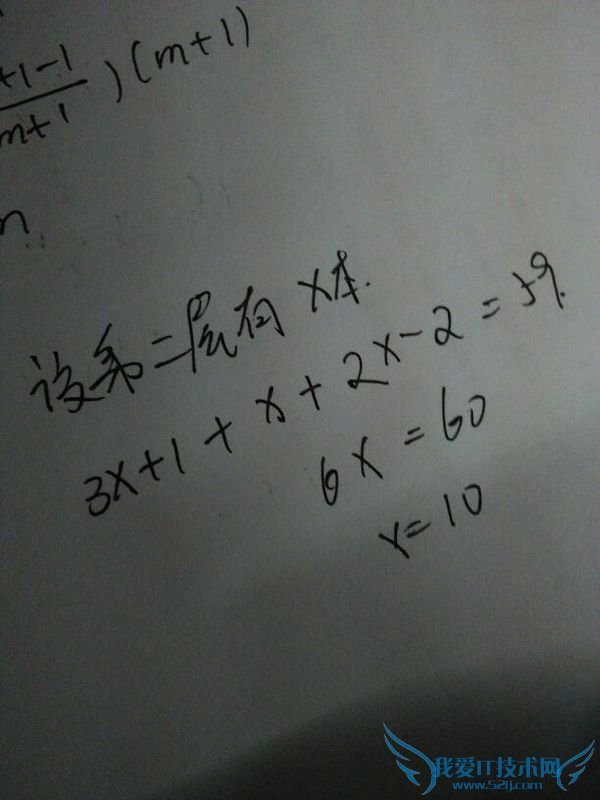 +1-1
m+1
)(m+1)
n
设第二层有x本.
3x+1+x+2x-2=59.
6x=60
x=10
我爱IT技术网
www.52ij.com